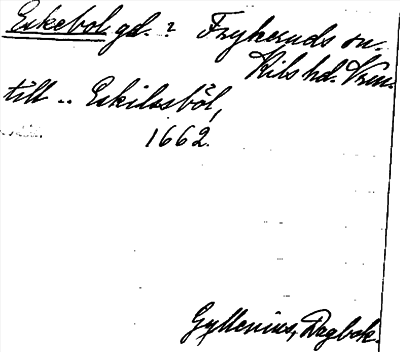 Eskebol gd. i Frykeruds sn.
Kils hd. Vrm.
till .. Eskilssbôl,
1662.
Gyllenius, Dagbok.